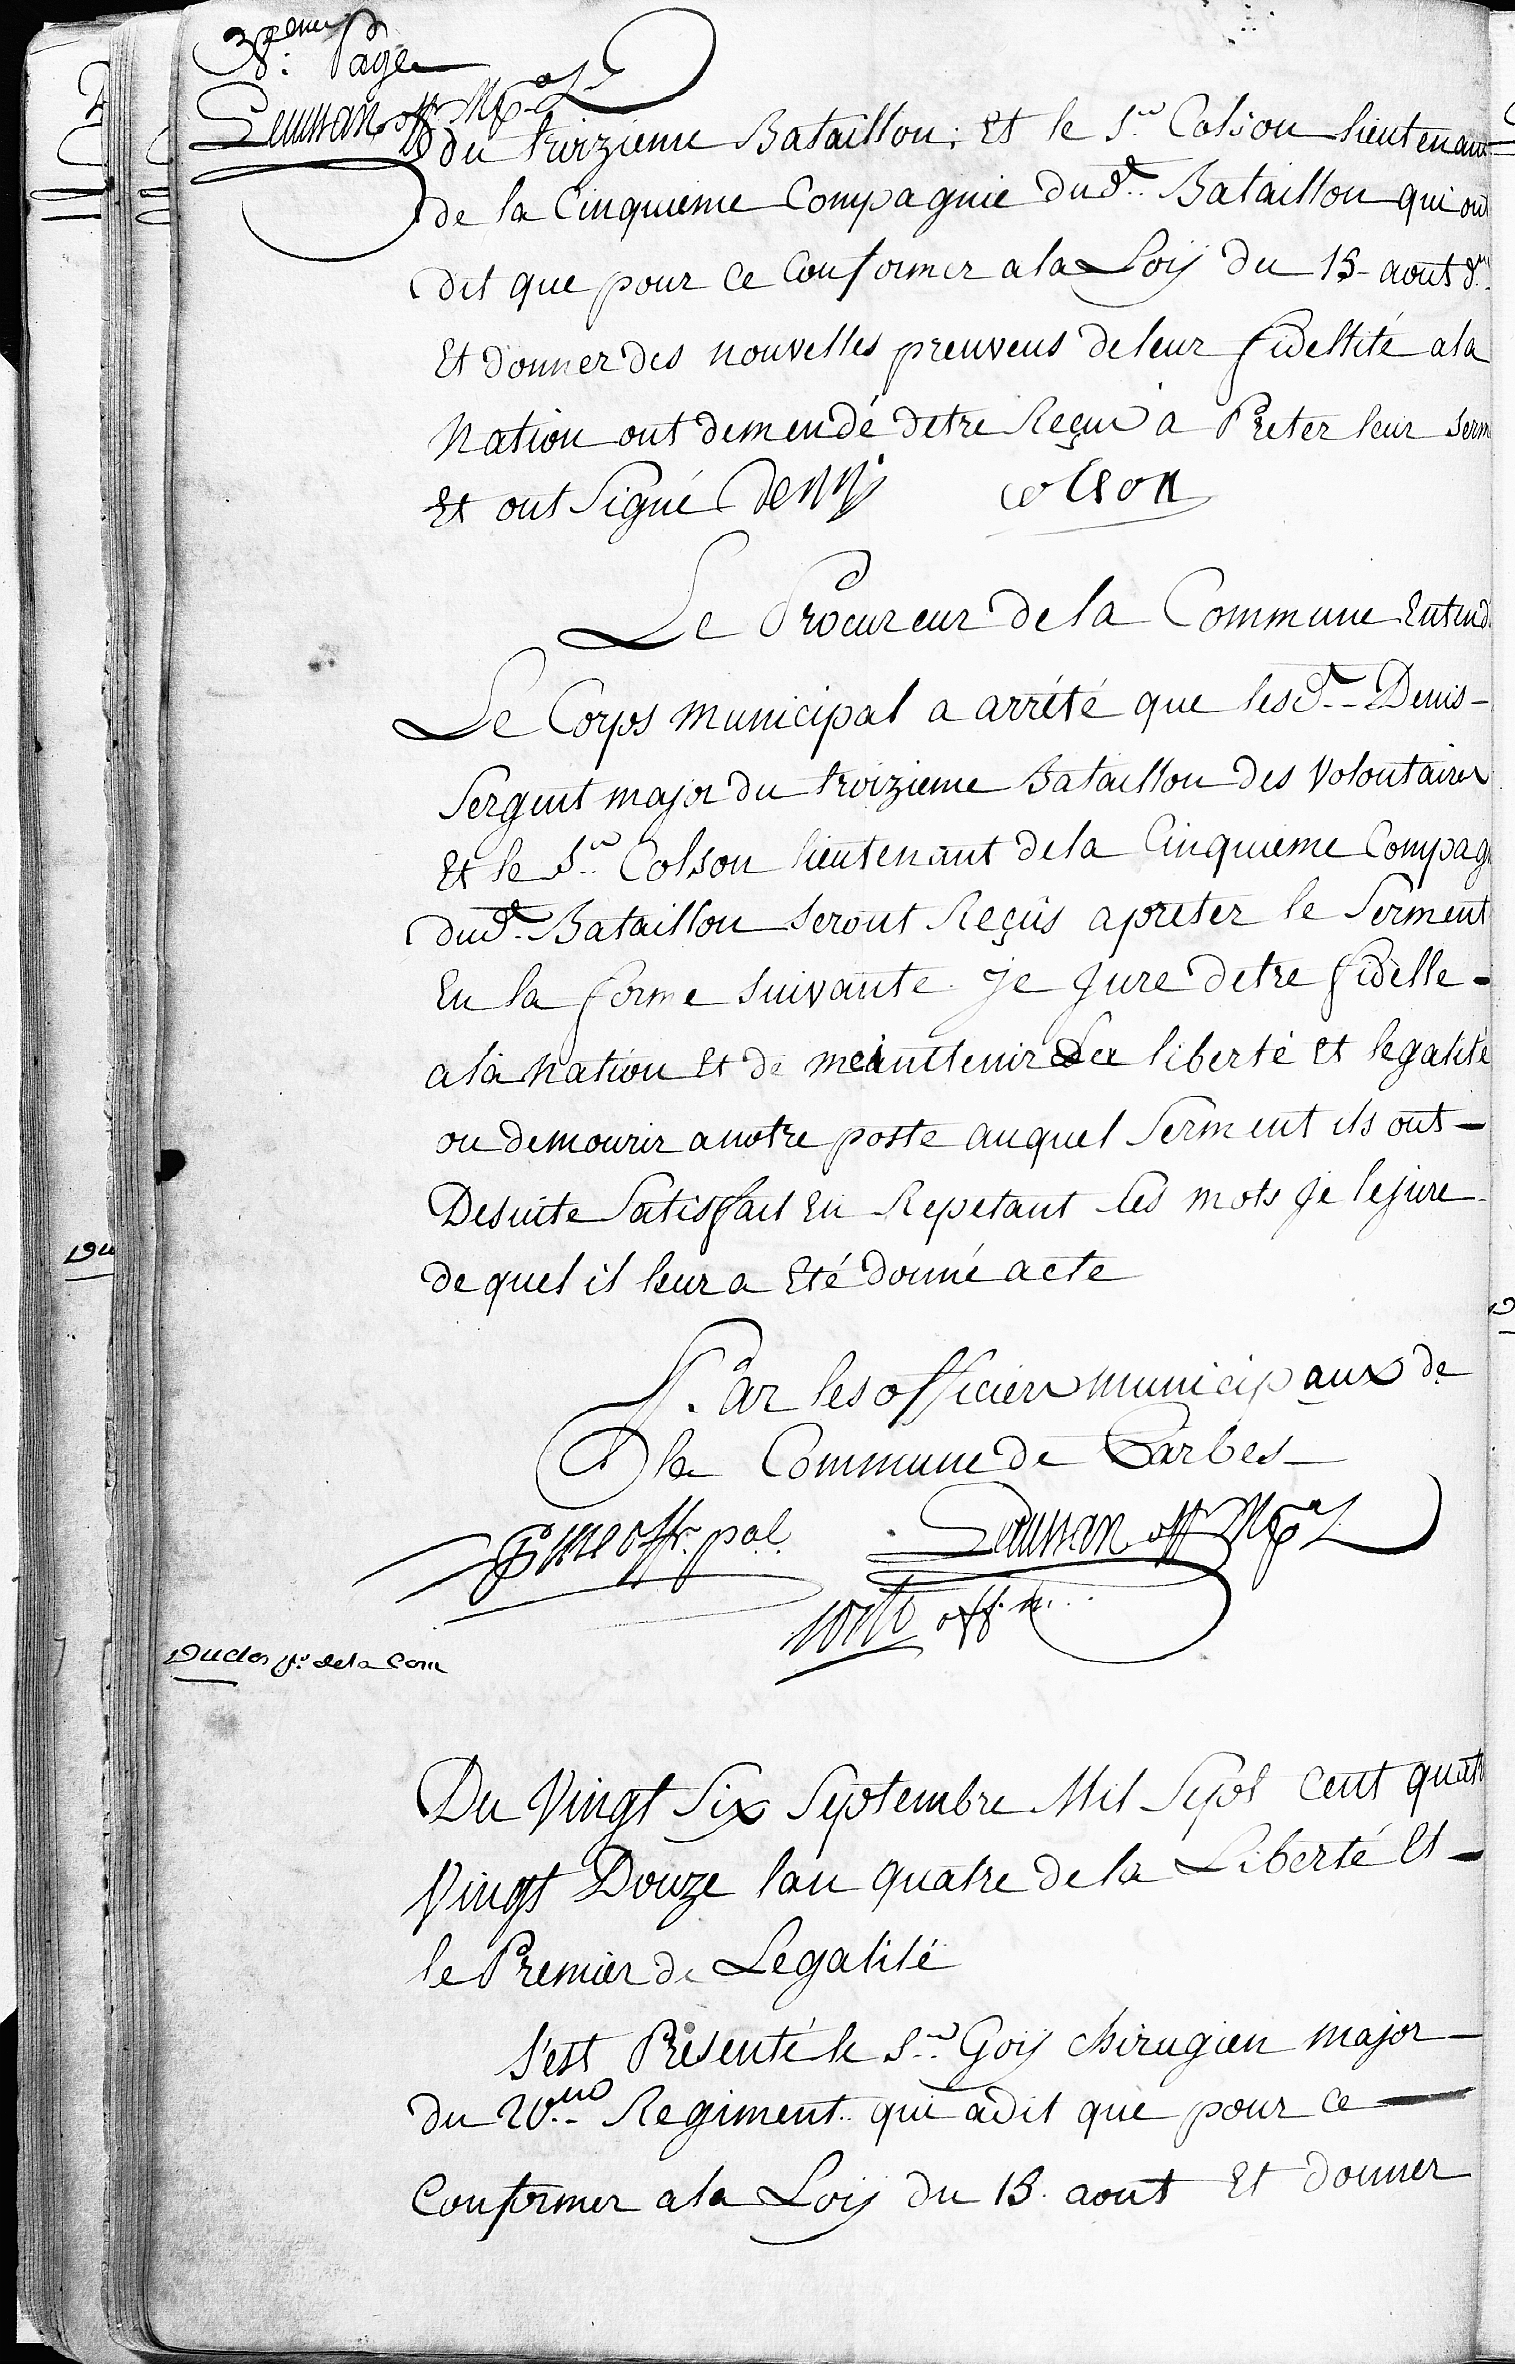 38.eme Page
Seumsan off. Mpal
du troizieme Bataillon; Et le Sr. Colson lieutenant
de la Cinquieme Compagnie dud. Bataillon qui ont
dit que pour Ce Conformer a la Loy du 15 aout dr.
Et donner des nouvelles preuveus de leur fidellité a la
Nation ont demendé detre Reçus a Preter leur Serm
Et ont Signé denis colson
Le Procureur de la Commune Entend.
Le Corps municipal a arrété que lesd. Denis
Sergent major du troizieme Bataillon des Volontaires
Et le Sr. Colson lieutenant de la Cinquieme Compag
dud. Bataillon Seront Reçûs a preter le Serment
En la forme Suivante. Je Jure detre fidelle
a la Nation Et de meinttenir La liberté Et legalité
ou de mourir a notre poste auquel Serment ils ont
De suite Satisfait En Repetant les mots Je le jure
de quel il leur a Eté donné acte
Par les officiers municipaux de
la Commune de Tarbes
off. pal.
Seumsan off Mpal
off. m.
Duclos pr. de la Com
Du Vingt Six Septembre Mil Sept Cent quatr
Vingt Douze lan quatre de la Liberté Et
le Premier de Legalité
S'est Présenté le Sr. Goy chirugien major
du 20.me Regiment. qui a dit que pour Ce
Conformer a la Loy du 15. aout Et donner